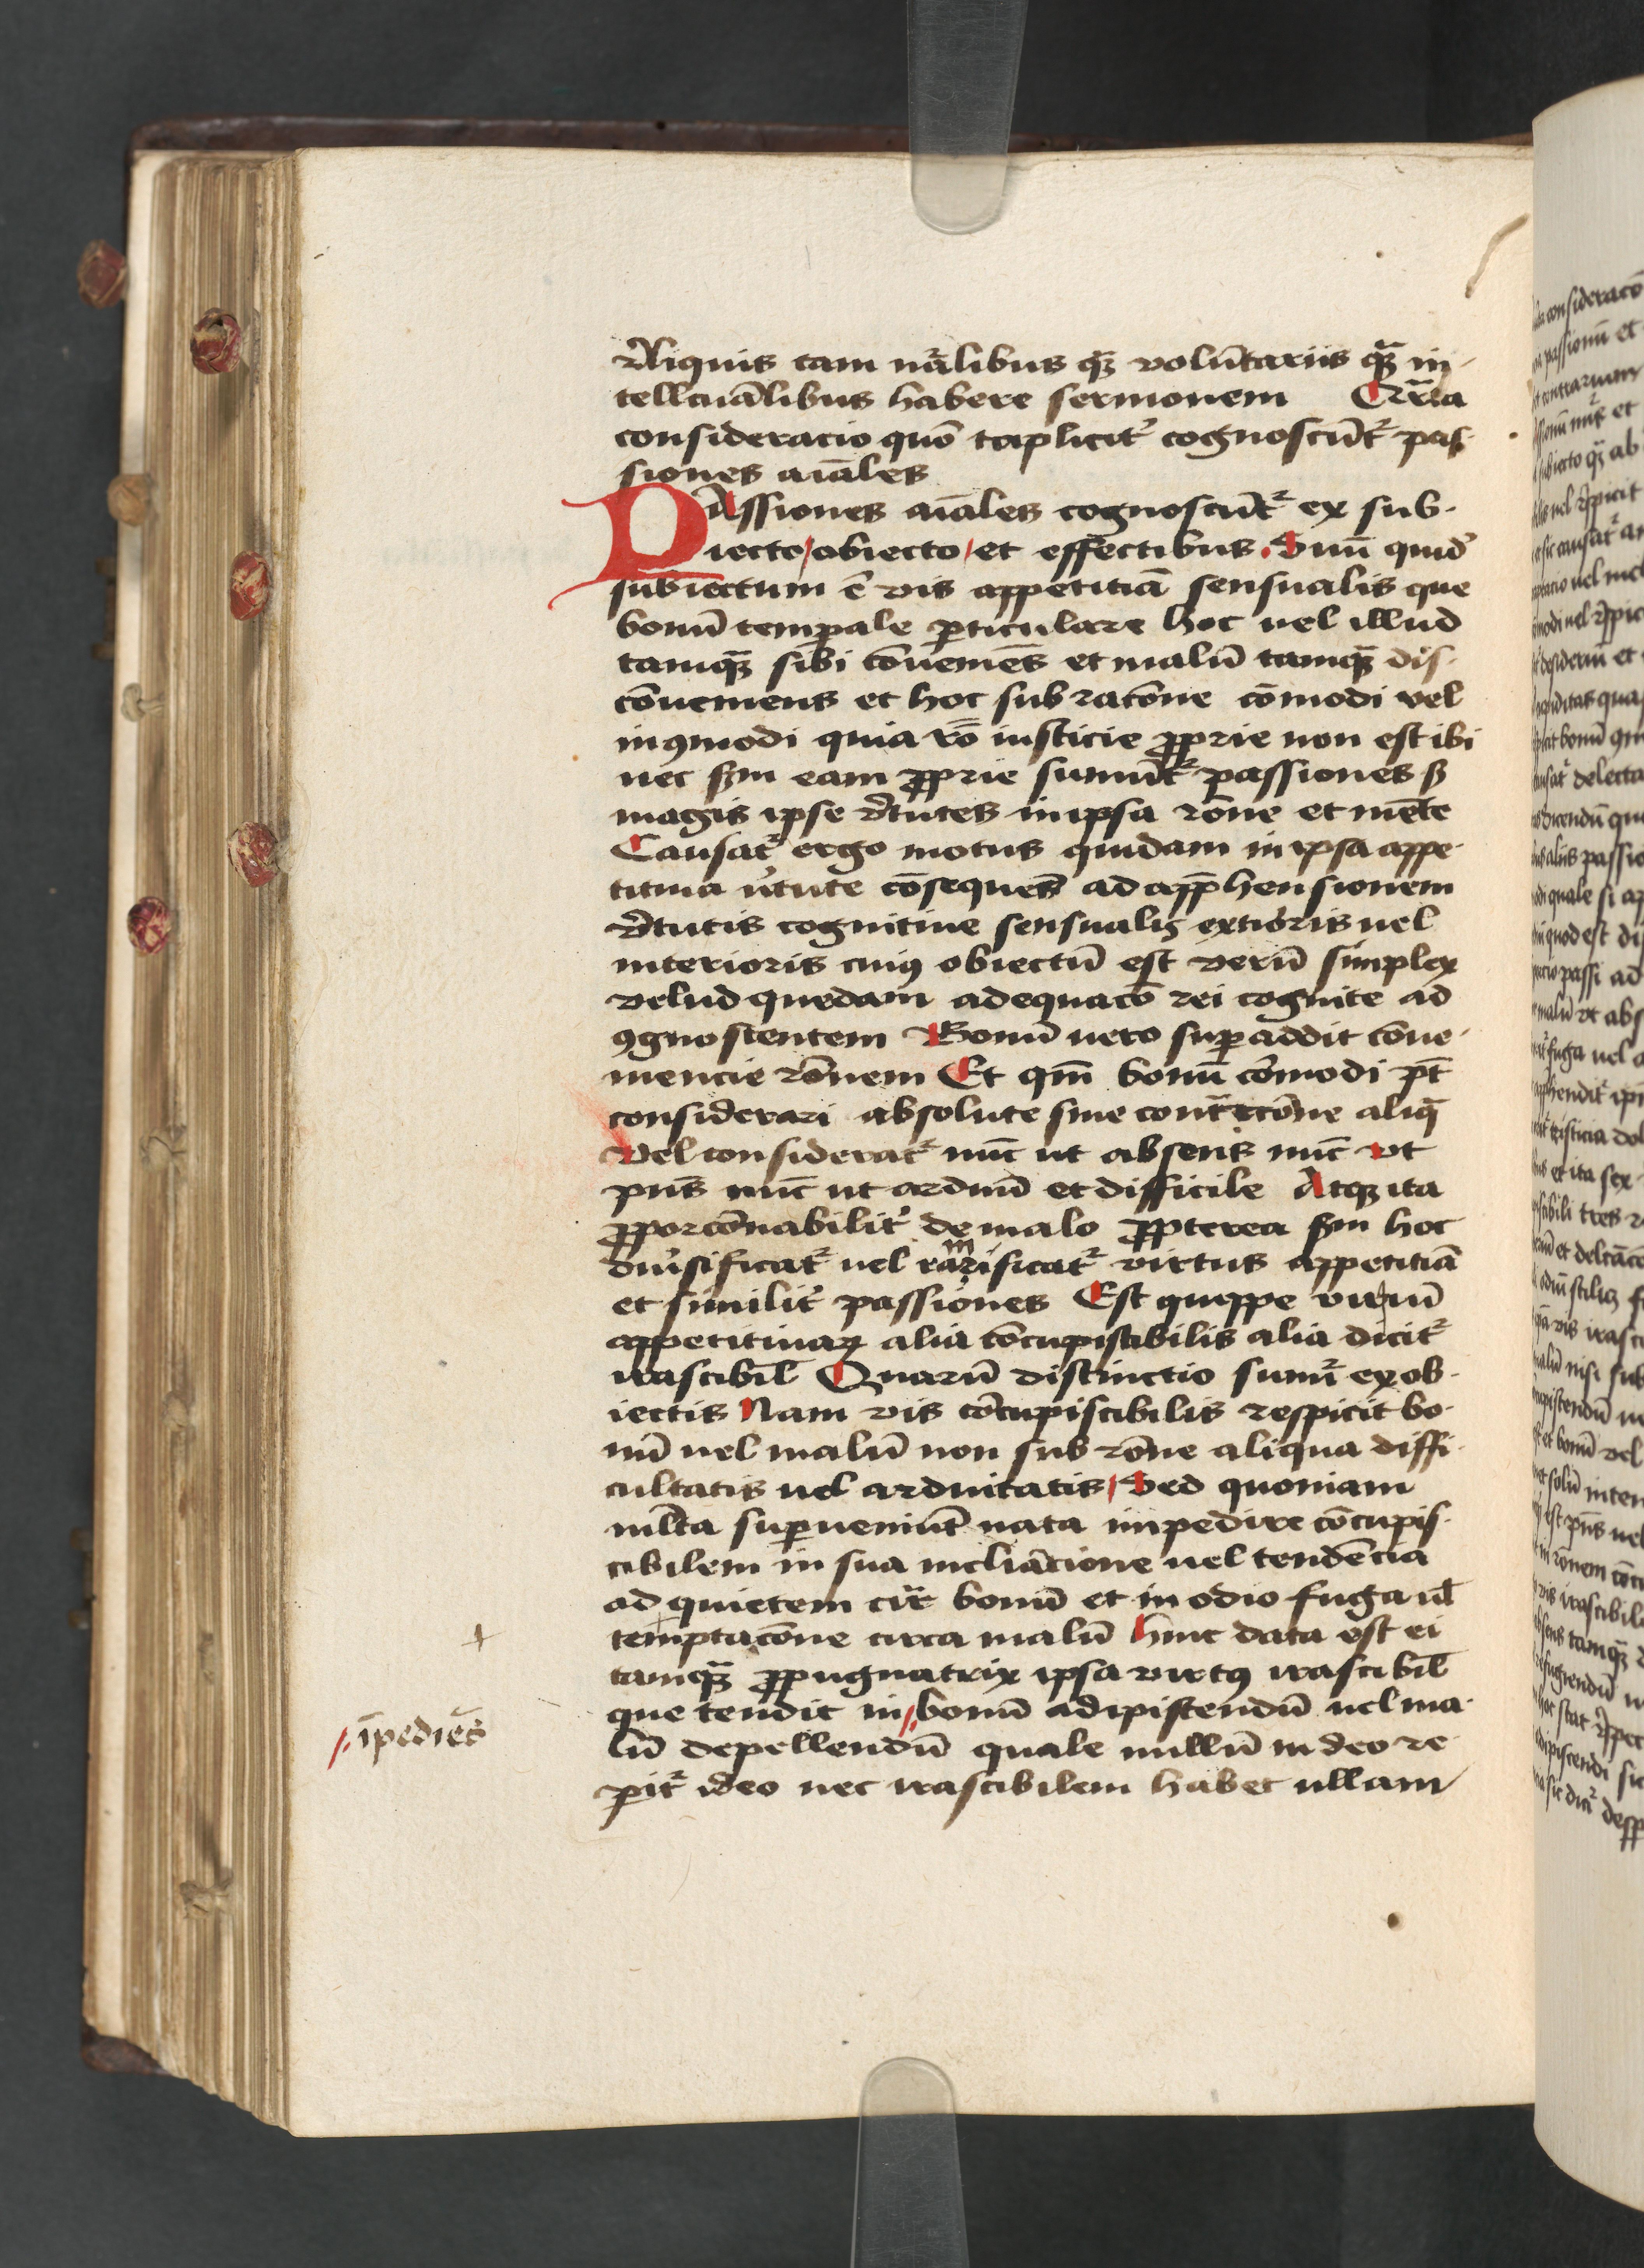 r̄liquis tam nr̄alibus qȝ̄ volūtariis qȝ̄ in-
tellcuālibus habere sermonem Qr̄ta
consideracio quō taplicit᷒ cognoscūt᷒ pas-
siones aiāles
PAssiones aiāles cognoscūt᷒ ex sub-
iecto / obiecto / et effectibus. Suū quid᷒
subiectum ē vis appetitiā sensualis que
bonū temp̲ale p̲ticulare hoc uel illud
tamqȝ̄ sibi cōueniēs et malū tamqȝ̄ dis-
cōueniens et hoc sub racōne cōmodi vel
inꝯmodi quia rō iusticie ꝓprie non est ibi
nec scd̄m eam ꝓprie sumūt᷒ passiones sȝ
magis ipse v̄tutes in ipsa rōne et mēte
Causat᷒ ergo motus quidam in ipsa appe-
titiua v̓tute cōsequēs ad app̄hensionem
v̄tutis cognitiue sensualis ext̓ioris uel
interioris cuiꝯ obiectū est verū simplex
velud quedam adequacō rei cognite ad
ꝯgnoscentem Bonū uero sup̲addit cōue-
niencie rōnem Et qm̄ bonū cōmodi pt̄
considerari absolute sine cont̄ctōne aliq̄
Vel considerat᷒ nūc ut absens nūc vt
pn̄s nūc ut arduū et difficile Atqȝ ita
ꝓporcōnabilit̓ de malo ꝓpterea scd̄m hoc
diu̓sificat᷒ uel ramificat᷒ virtus appetitiā
et similit̓ passiones Est quippe viriū
appetitiuaꝝ alia cōcupiscibilis alia dicit᷒
irascibil̄ Quarū distinctio sumit᷒ ex ob-
iectis Nam vis cōcupiscibilis respicit bo-
nū uel malū non sub rōne aliqua diffi-
cultatis uel arduitatis / Sed quoniam
ml̄ta sup̲ueniūt nata impedire cōcupis-
cibilem in sua incliāctione uel tendēcia
ad quietem circ̄ bonū et in odio fuga ul̄
temptacōne circa malū hinc data est ei
tamqȝ̄ ꝓpugnatrix ipsa virtꝯ irascibil̄
que tendit in // bonū adipiscendū uel ma-
lū depellendū quale nullū in deo re-
p̲it᷒ ideo nec irascibilem habet ullam
+
//. īpediēs